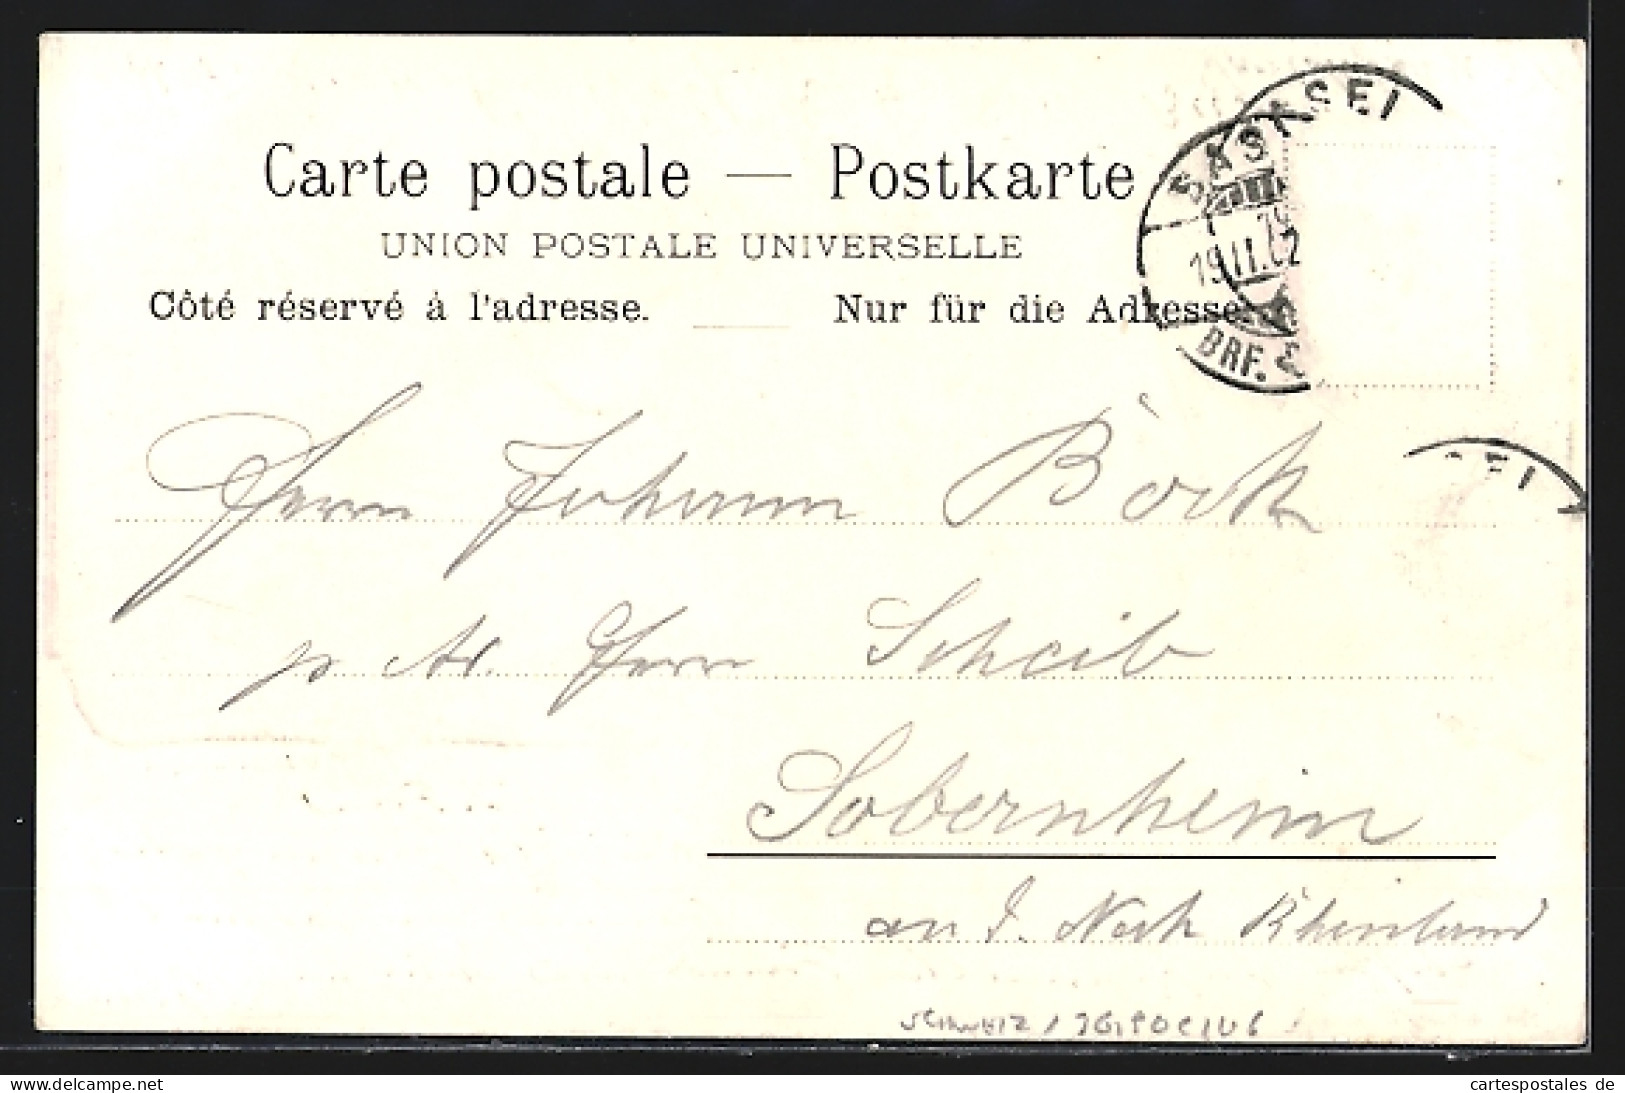 Carte postale — Postkarte
UNION POSTALE UNIVERSELLE
Côté réservé à l'adresse. Nur für die Adresse.
BASEL
19.II.02
BRF.
SEI
Herrn Johann Bock
p. Ad. Herrn Scheib
Sobernheim
an d. Nah Rheinland
SCHWEIZ /
cartespostales.de